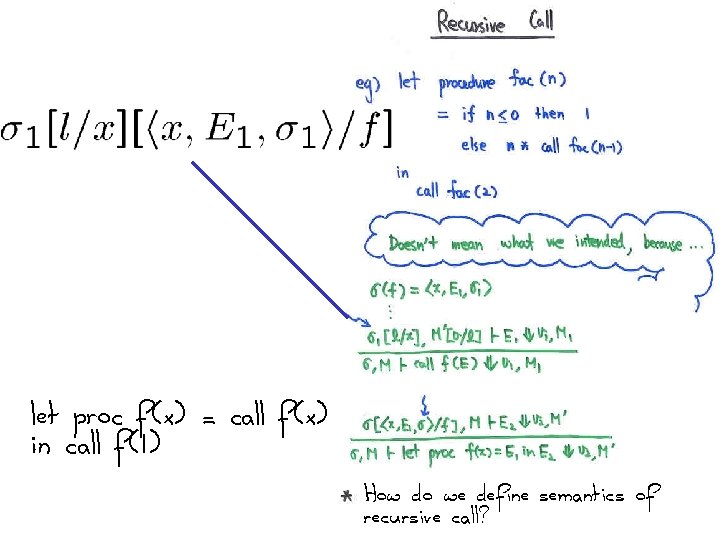 Recursive Call
eg) let procedure fac(n)
= if n≤0 then 1
else n * call fac(n-1)
in
call fac(2)
σ₁[l/x][⟨x, E₁, σ₁⟩/f]
Doesn't mean what we intended, because ...
σ(f) = ⟨x, E₁, σ₁⟩
⋮
σ₁[l/x], M'[v/l] ⊢ E₁ ⇓ v₁, M₁
σ, M ⊢ call f(E) ⇓ v₁, M₁
let proc f(x) = call f(x)
in call f(1)
σ[⟨x,E₁,σ⟩/f], M ⊢ E₂ ⇓ v₂, M'
σ, M ⊢ let proc f(x)=E₁ in E₂ ⇓ v₂, M'
* How do we define semantics of
recursive call?